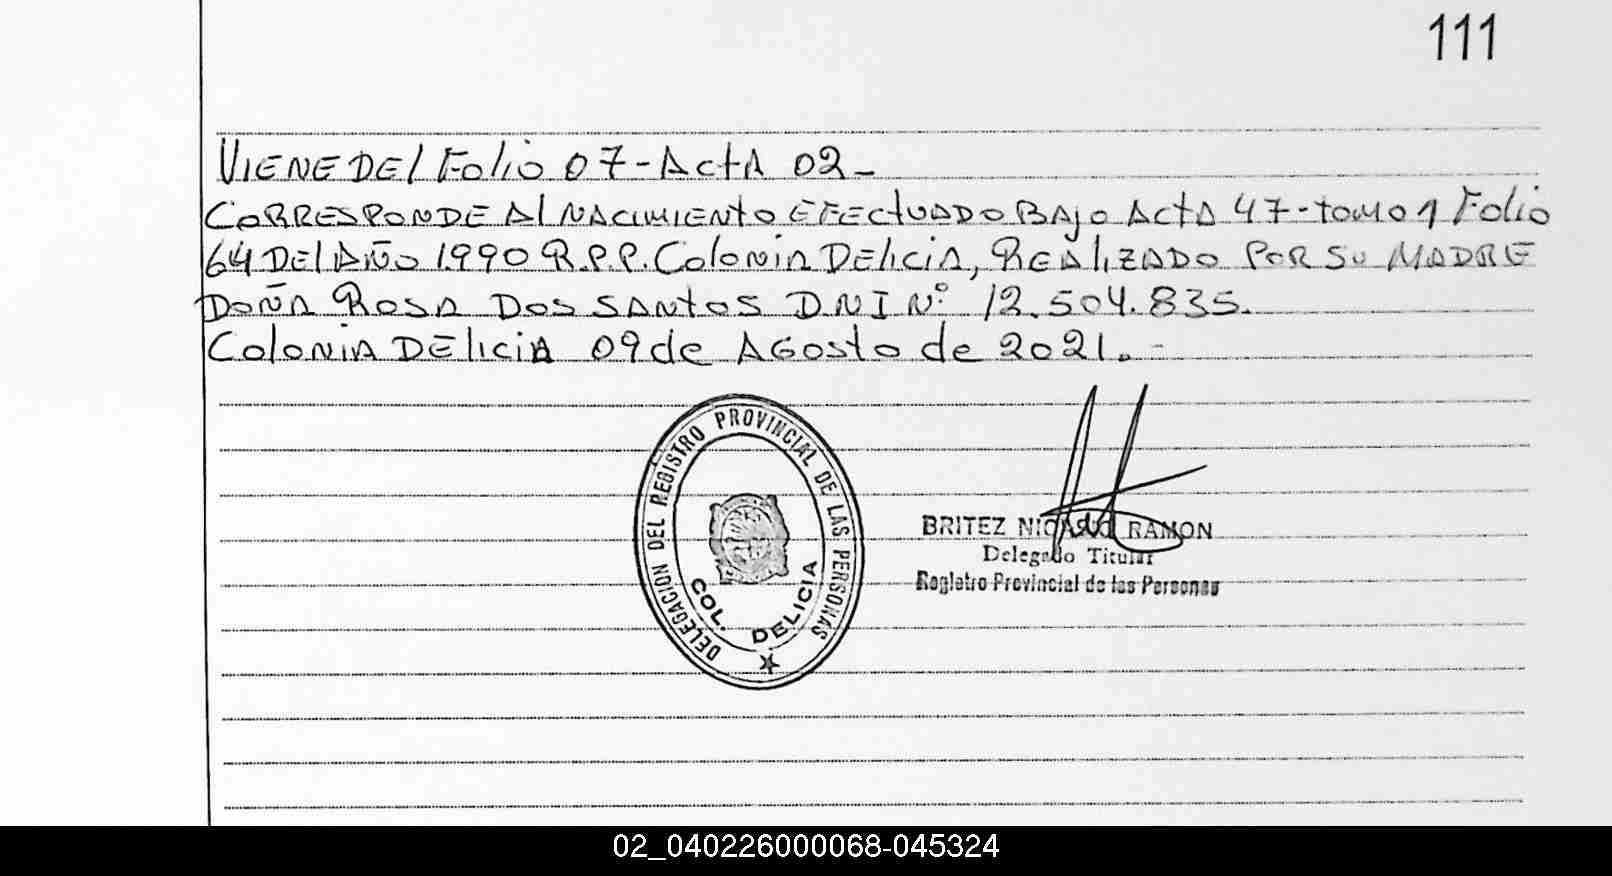 111
VIENE DEL Folio 07-ActA 02-
CORRESPONDE Al NACIMIENTO EFECTUADO BAJO ActA 47-tomo 1 Folio
64 DEL AÑO 1.990 R.P.P. Colonia Delicia, REAlIZADO POR SU MADRE
DOÑA ROSA DOS SANTOS D.N.I Nº 12.504.835.
Colonia DElicia 09 de AGosto de 2021.-
DELEGACION DEL REGISTRO PROVINCIAL DE LAS PERSONAS
COL. DELICIA
BRITEZ NICASIO RAMON
Delegado Titular
Registro Provincial de las Personas
02_040226000068-045324